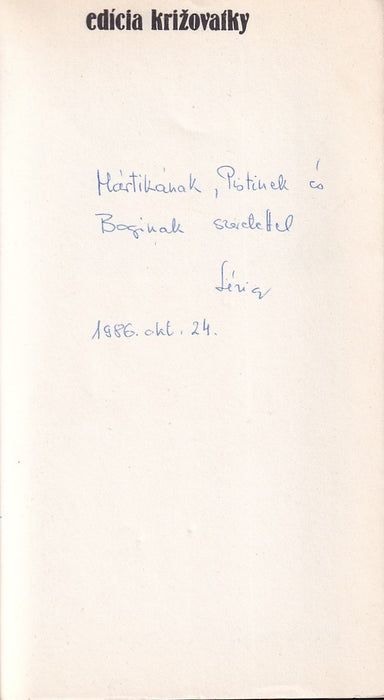 edícia križovatky
Mártikának, Pistinek és
Boginak szeretettel
1986. okt. 24.